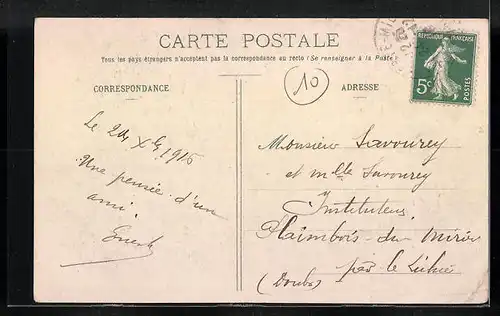 CARTE POSTALE
Tous les pays étrangers n'acceptent pas la correspondance au recto (Se renseigner à la Poste)
CORRESPONDANCE
ADRESSE
10
REPUBLIQUE FRANÇAISE
5c
POSTES
Le 24 Xbre 1915
Une pensée d'un
ami.
Monsieur Savourey
et Mlle Savourey
Instituteur
Plaimbois-du-Miroir
par le Luhier
(Doubs)